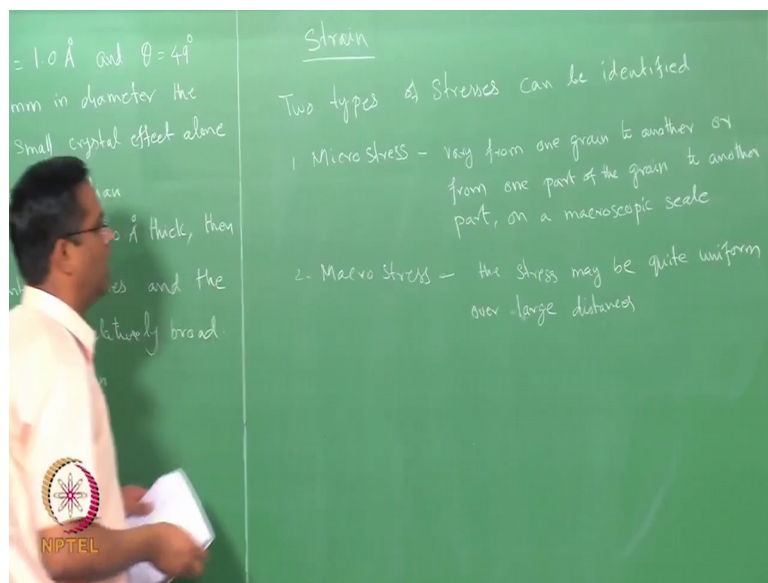 = 1.0 Å and θ = 49°
mm in diameter the
Small crystal effect alone
Å thick, then
and the
broad.
Strain
Two types of Stresses can be identified
1. Micro Stress - vary from one grain to another or
from one part of the grain to another
part, on a macroscopic scale
2. Macro Stress - the stress may be quite uniform
over large distances
NPTEL